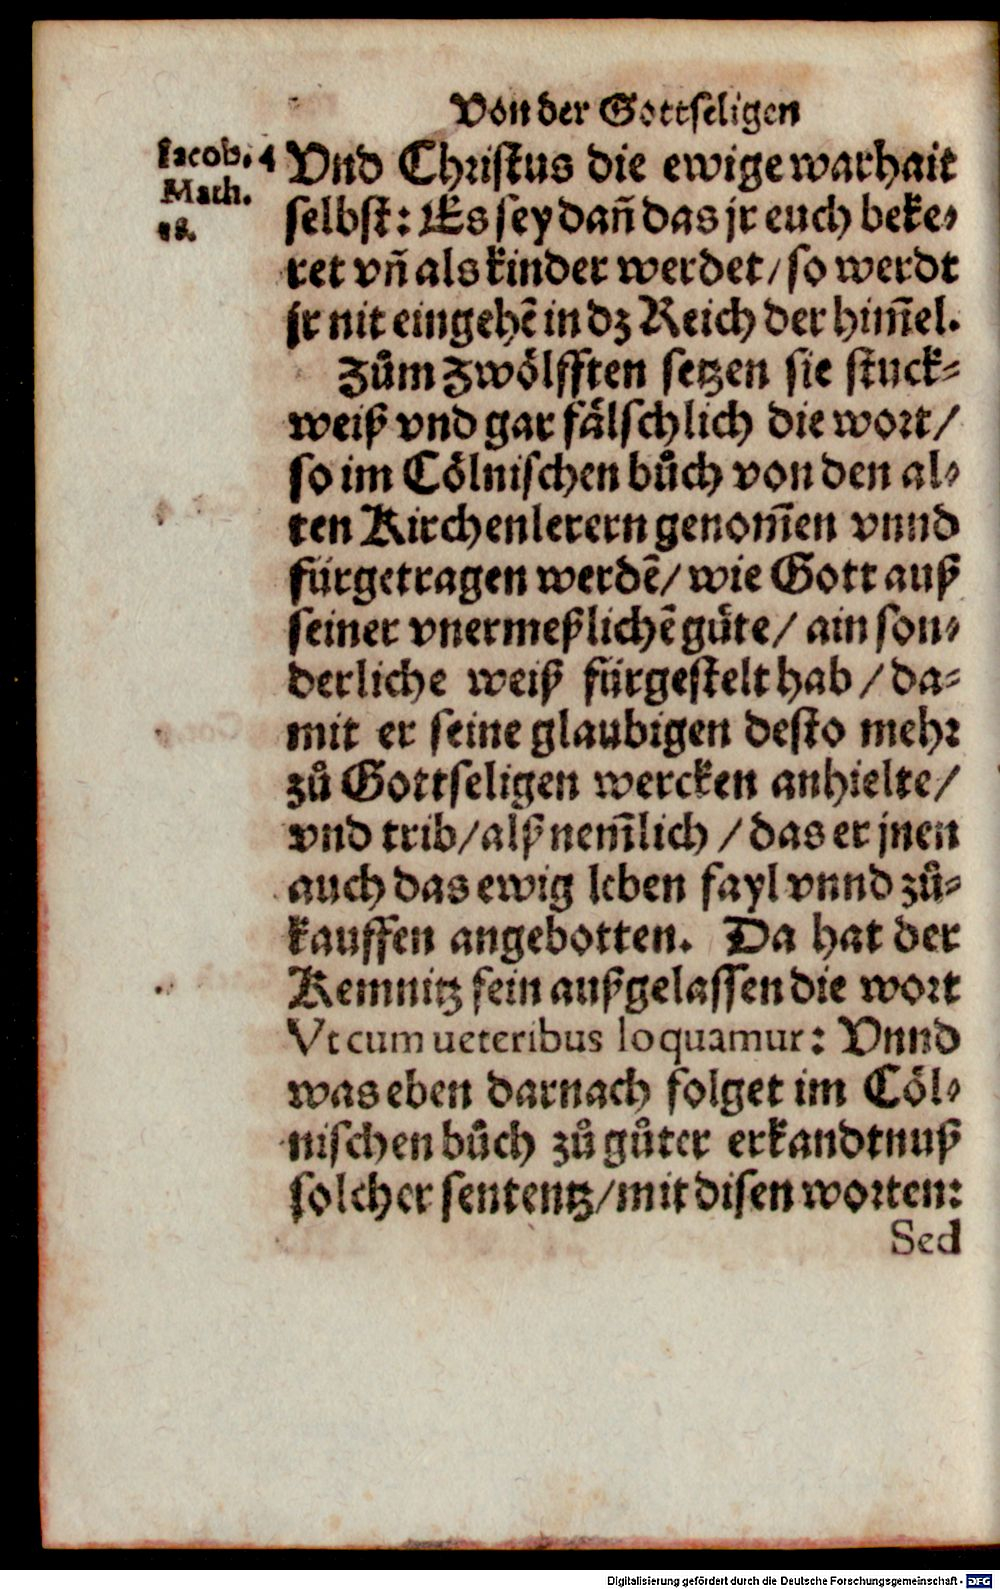 Von der Gottseligen
Iacob. 4
Math.
18.
Vnd Christus die ewige warhait
selbst: Es sey dañ das jr euch beke-
ret vñ als kinder werdet/ so werdt
jr nit eingehẽ in dz Reich der him̃el.
Zům Zwölfften setzen sie stuck-
weiß vnd gar fälschlich die wort/
so im Cölnischen bůch von den al-
ten Kirchenlerern genom̃en vnnd
fürgetragen werdẽ/ wie Gott auß
seiner vnermeßlichẽ güte/ ain son-
derliche weiß fürgestelt hab/ da-
mit er seine glaubigen desto mehr
zů Gottseligen wercken anhielte/
vnd trib/ alß nem̃lich/ das er jnen
auch das ewig leben fayl vnnd zů-
kauffen angebotten. Da hat der
Kemnitz fein außgelassen die wort
Vt cum ueteribus loquamur: Vnnd
was eben darnach folget im Cöl-
nischen bůch zů gůter erkandtnuß
solcher sententz/ mit disen worten:
Sed
Digitalisierung gefördert durch die Deutsche Forschungsgemeinschaft - DFG